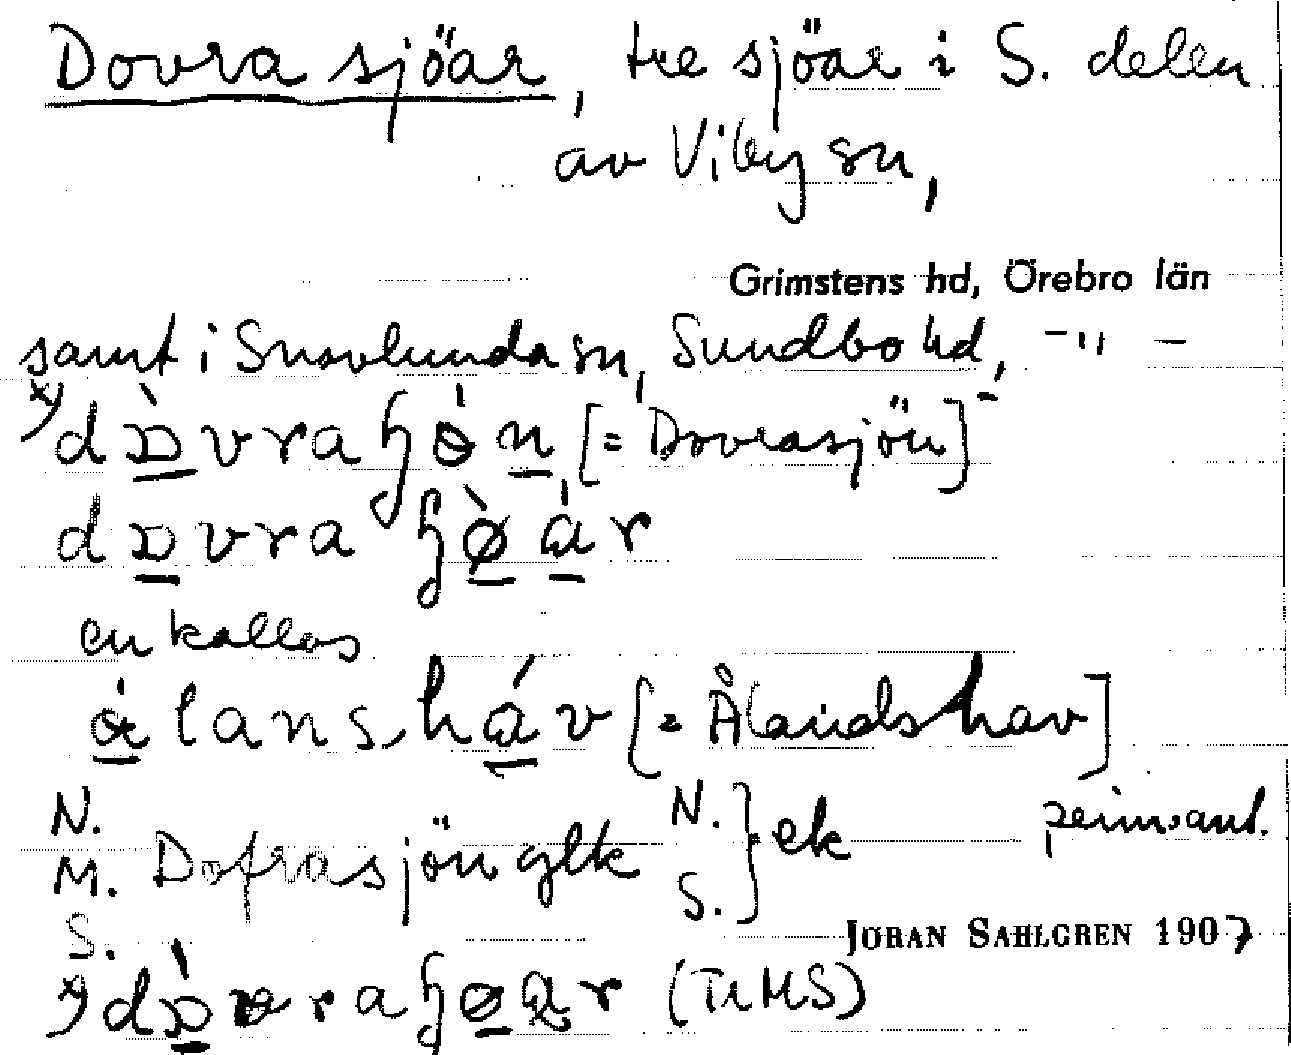 Dovra sjöar, tre sjöar i S. delen
av Viby sn,
Grimstens hd, Örebro län
samt i Snavlunda sn, Sundbo hd, -"-
x) dɒ̀vraɧө́n [= Dovrasjön]
dɒvra ɧø̀ár
en kallas
ålansháv [= Ålands hav]
N.
M. Dofrasjön glk N. S. } ek
S.
JÖRAN SAHLGREN 1907
x) dɒ̀vraɧøar (TrMS)